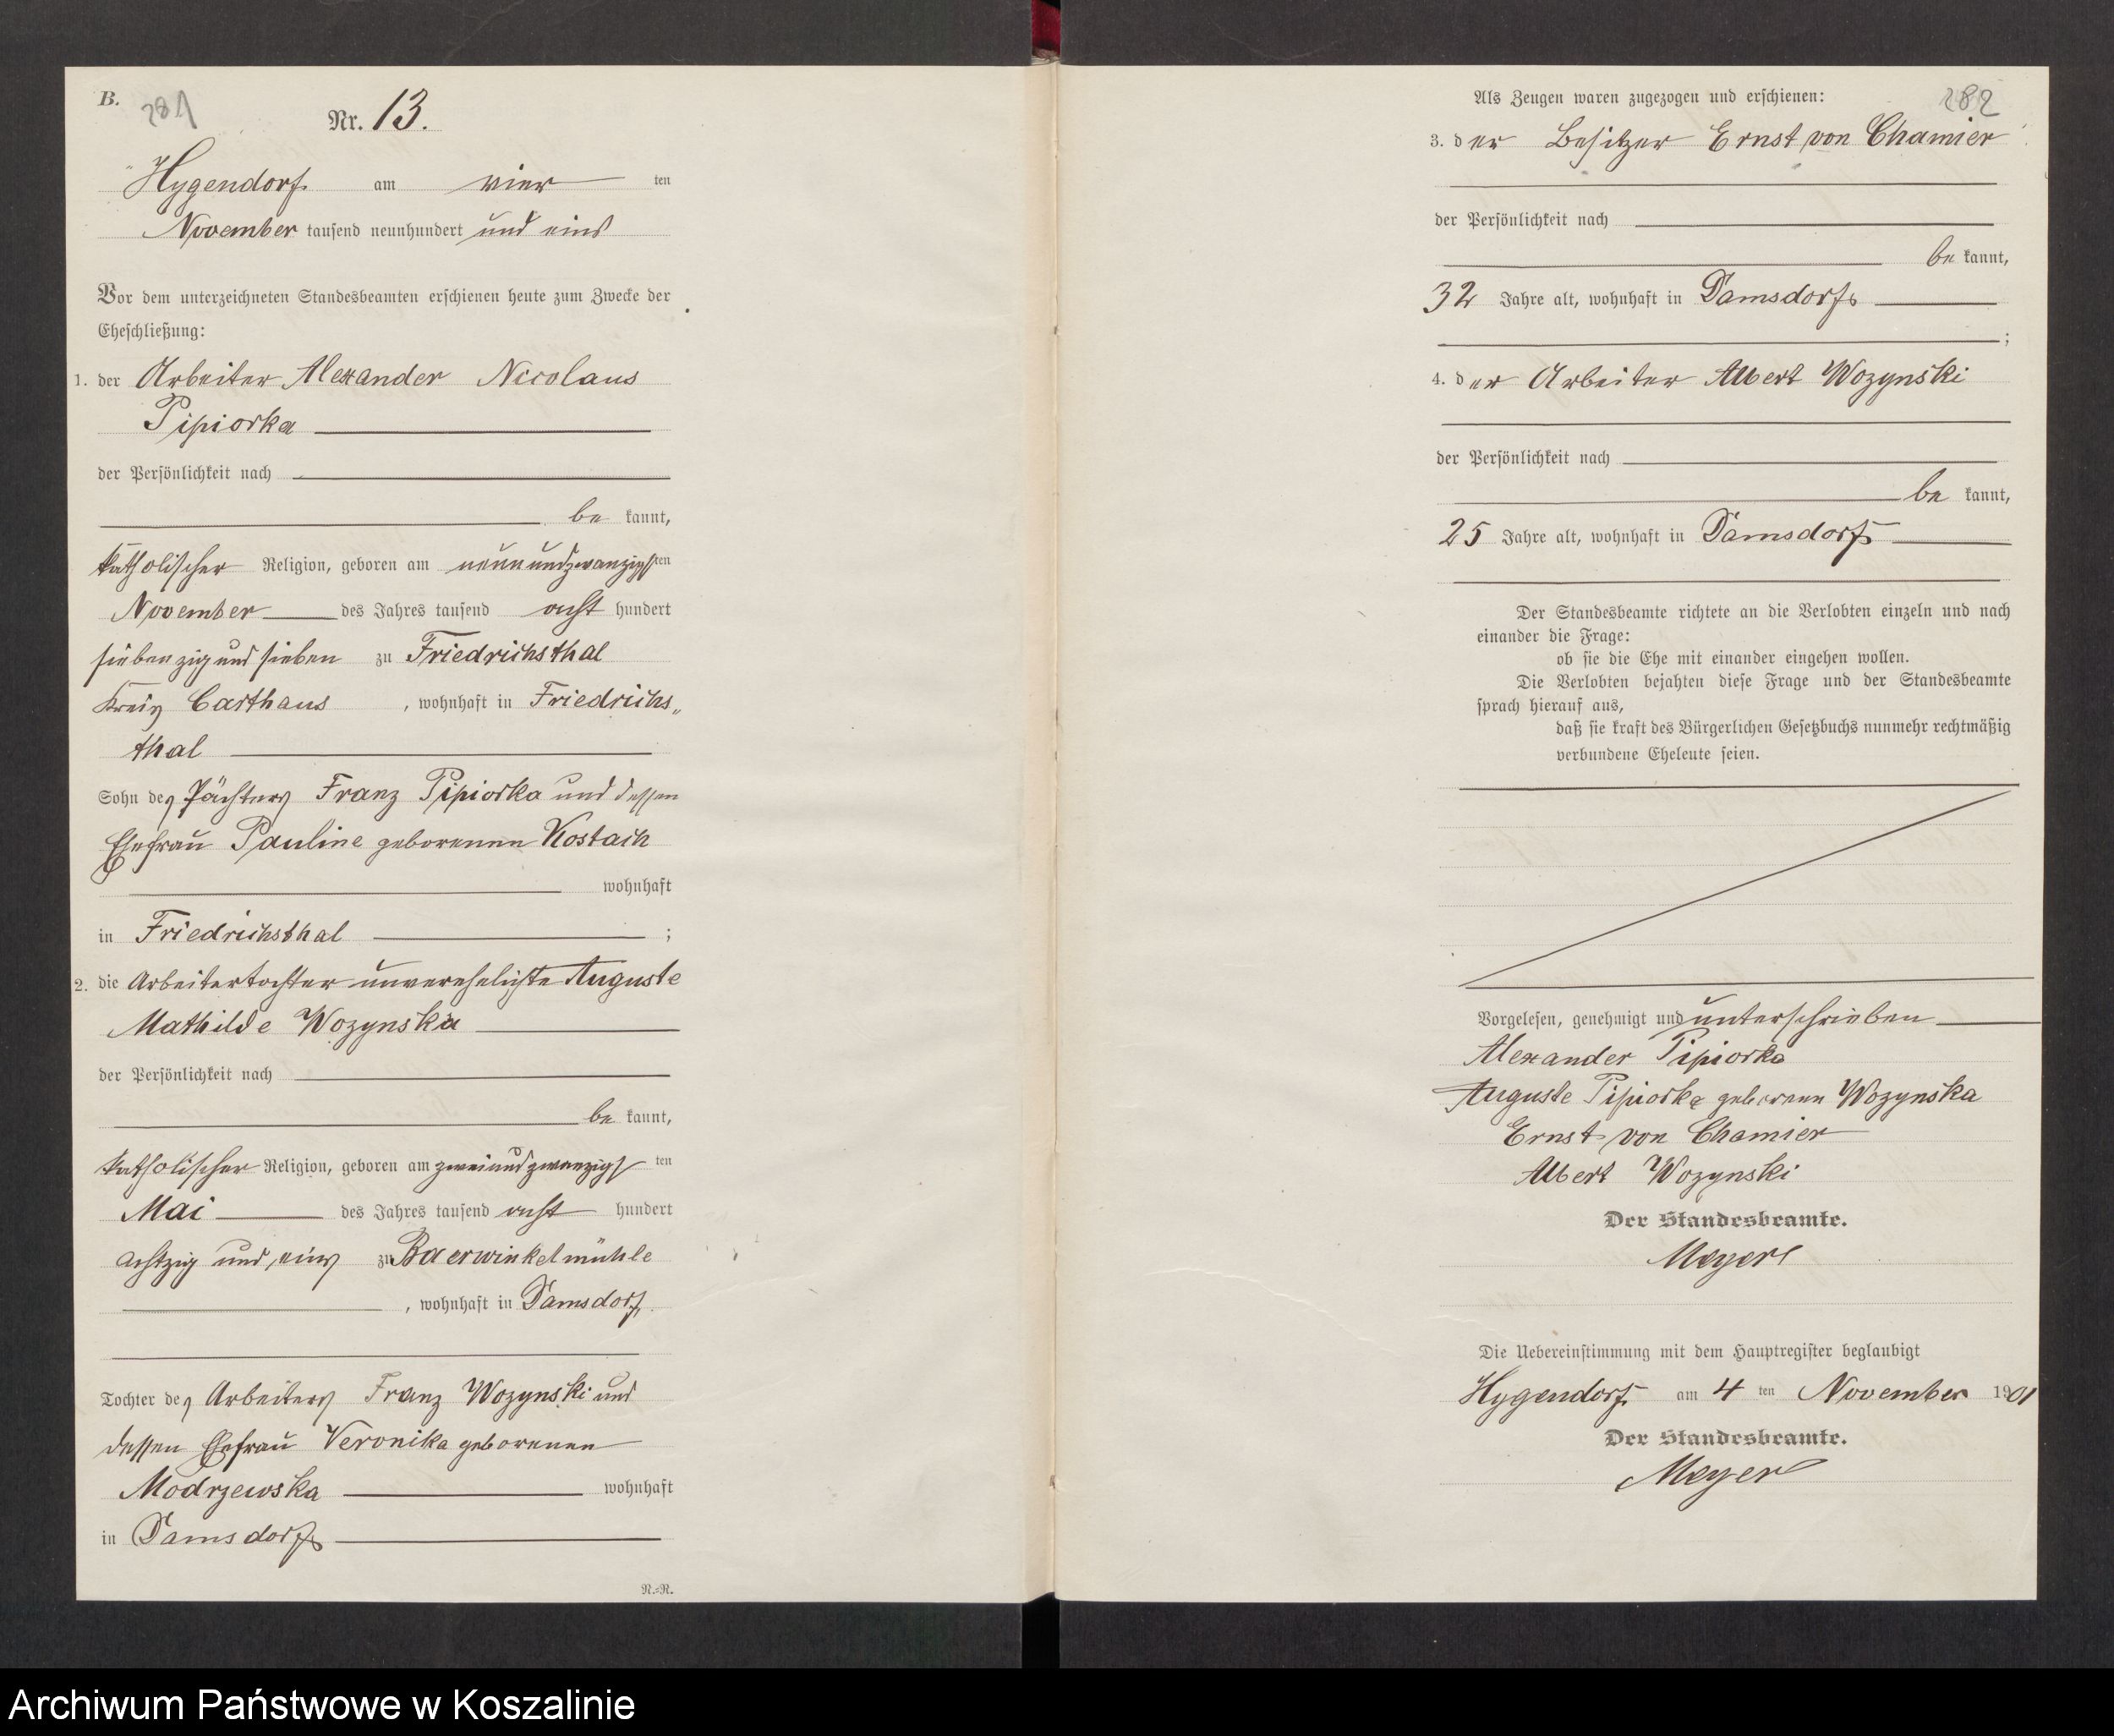 B.
281
Nr. 13.
Hygendorf am vier ten
November tausend neunhundert und eins
Vor dem unterzeichneten Standesbeamten erschienen heute zum Zwecke der
Eheschließung:
1. der Arbeiter Alexander Nicolaus
Pipiorka
der Persönlichkeit nach
be kannt,
katholischer Religion, geboren am neunundzwanzigsten
November des Jahres tausend acht hundert
siebenzig und sieben zu Friedrichsthal
Kreis Carthaus, wohnhaft in Friedrichs„
thal
Sohn des Pächters Franz Pipiorka und dessen
Ehefrau Pauline geborenen Kostach
wohnhaft
in Friedrichsthal ;
2. die Arbeitertochter unverehelichte Auguste
Mathilde Wozynska
der Persönlichkeit nach
be kannt,
katholischer Religion, geboren am zweiundzwanzigs ten
Mai des Jahres tausend acht hundert
achtzig und eins zu Baerwinkelmühle
, wohnhaft in Damsdorf
Tochter des Arbeiters Franz Wozynski und
dessen Ehefrau Veronika geborenen
Modrzewska wohnhaft
in Damsdorf
R.=R.
Als Zeugen waren zugezogen und erschienen:
282
3. der Besitzer Ernst von Chamier
der Persönlichkeit nach
be kannt,
32 Jahre alt, wohnhaft in Damsdorf
;
4. der Arbeiter Albert Wozynski
der Persönlichkeit nach
be kannt,
25 Jahre alt, wohnhaft in Damsdorf
Der Standesbeamte richtete an die Verlobten einzeln und nach
einander die Frage:
ob sie die Ehe mit einander eingehen wollen.
Die Verlobten bejahten diese Frage und der Standesbeamte
sprach hierauf aus,
daß sie kraft des Bürgerlichen Gesetzbuchs nunmehr rechtmäßig
verbundene Eheleute seien.
Vorgelesen, genehmigt und unterschrieben
Alexander Pipiorka
Auguste Pipiorka geborene Wozynska
Ernst von Chamier
Albert Wozynski
Der Standesbeamte.
Meyer
Die Uebereinstimmung mit dem Hauptregister beglaubigt
Hygendorf am 4 ten November 1901
Der Standesbeamte.
Meyer
Archiwum Państwowe w Koszalinie